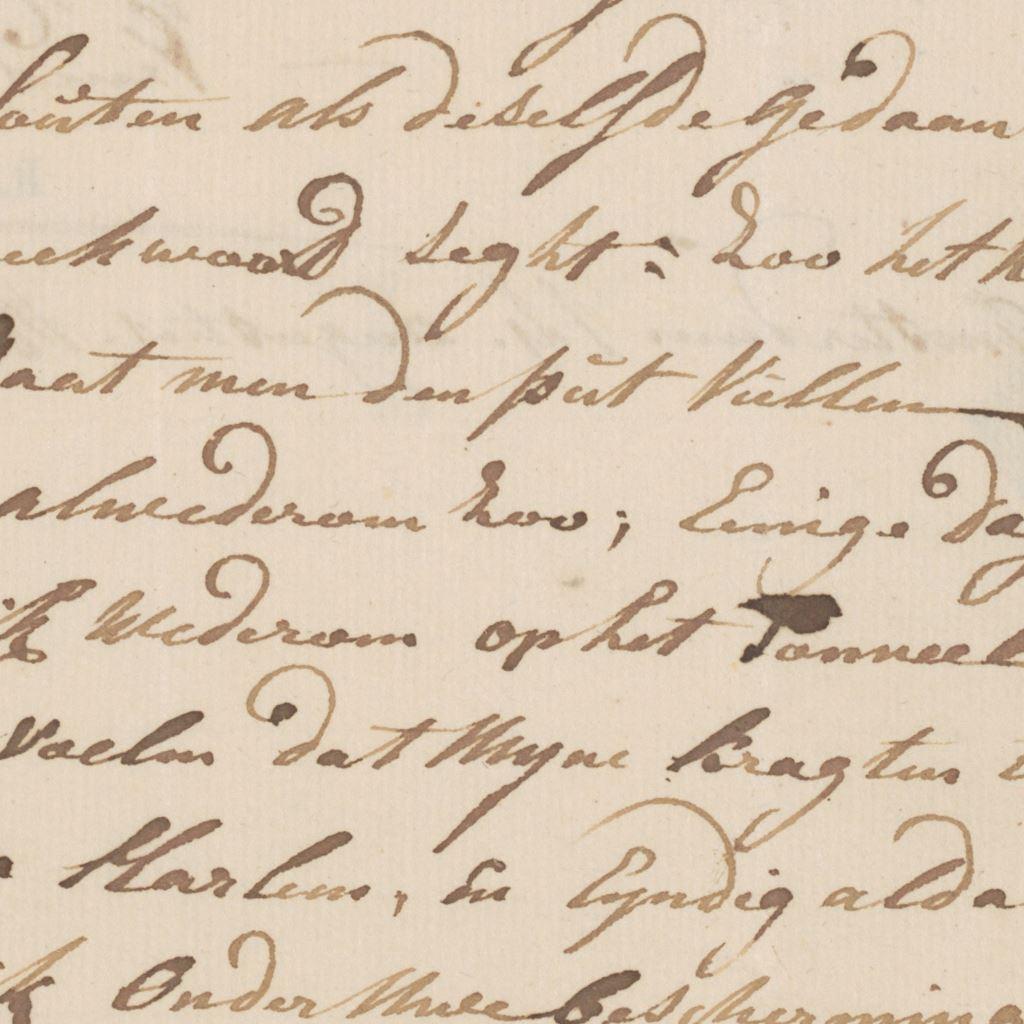 houten als deselfde gedaan
eekwoord seght: Zoo het k
laat men den put Vullen
alwederom Zoo; Einige dag
ik wederom op het Tonneel
Voelen dat Myne kragten
Harlem, En Eyndig alda
ik Onder Uwe bescherming